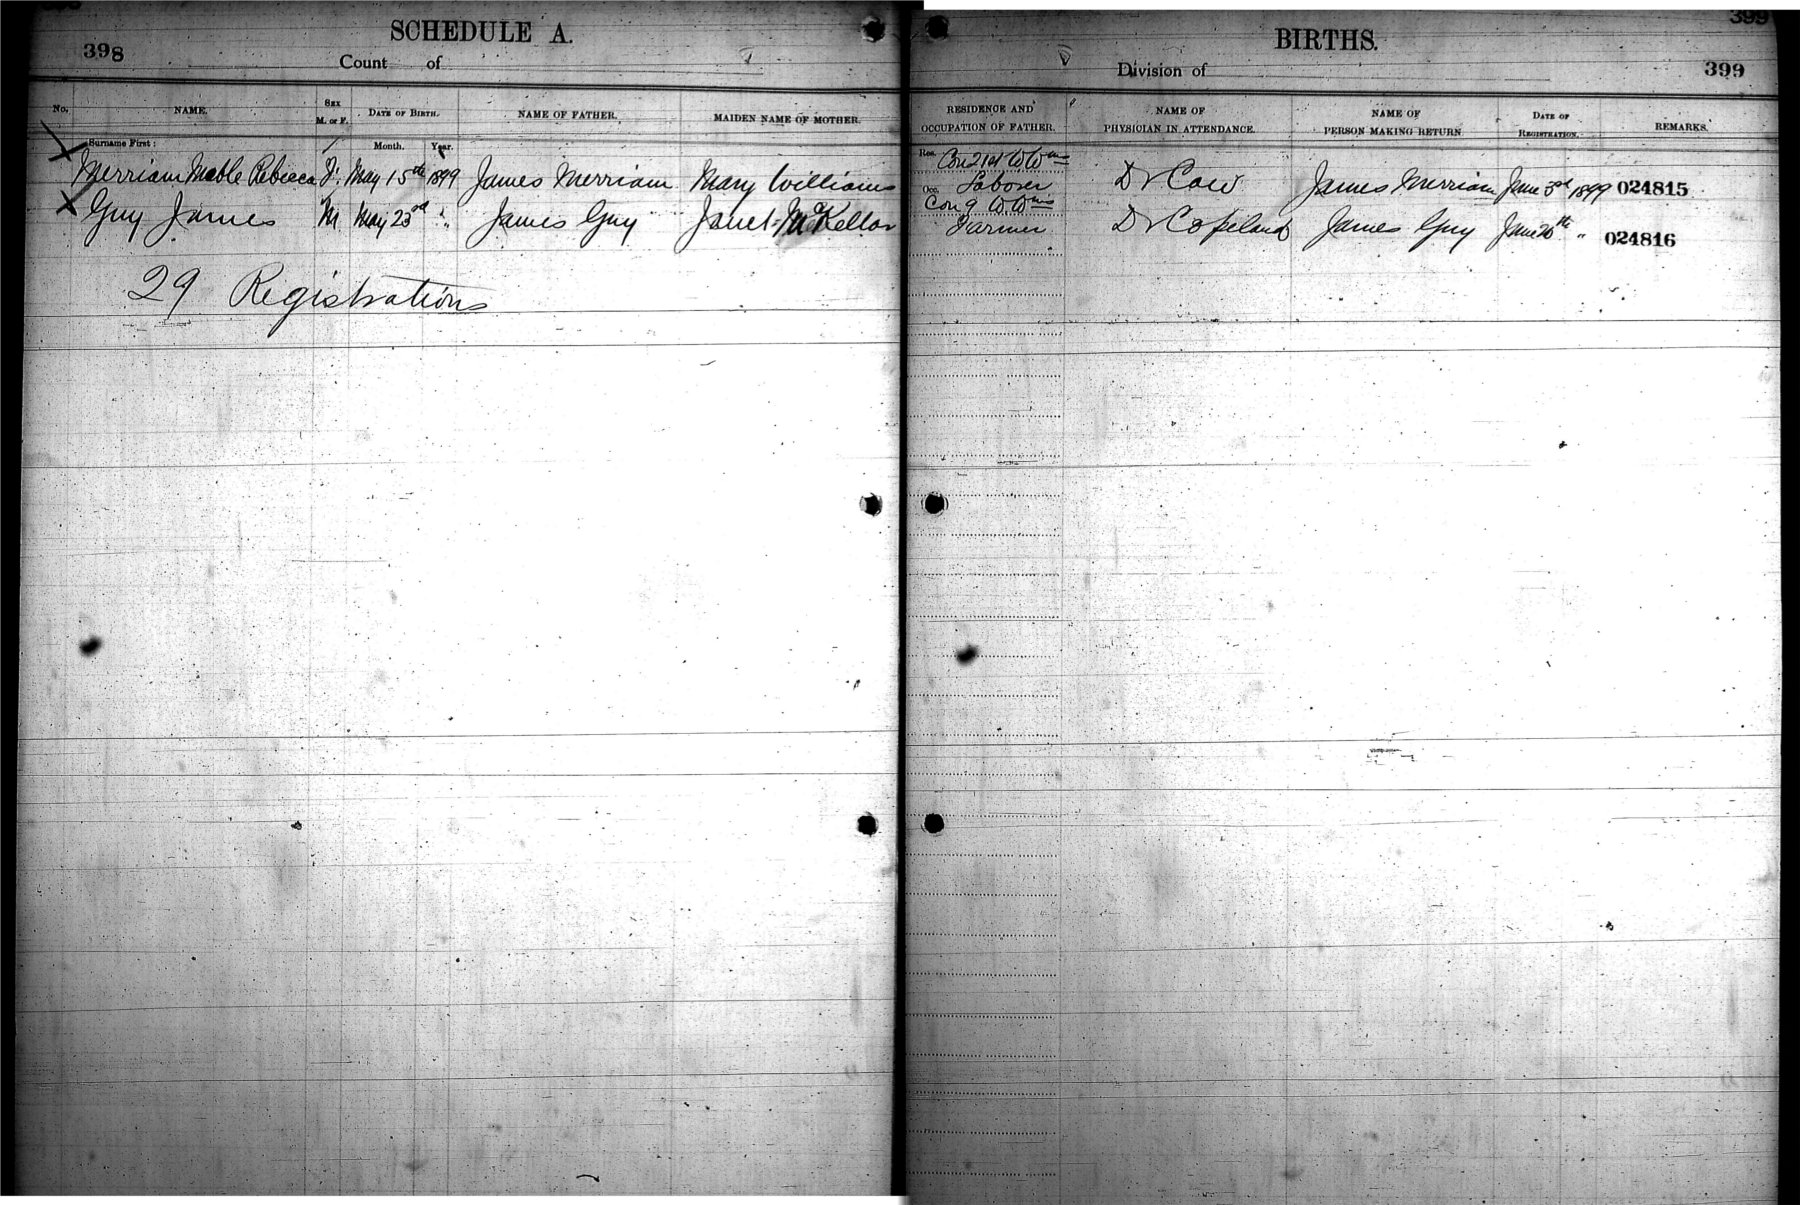 398
SCHEDULE A.
Count of
No.
NAME.
SEX
M. or F.
DATE OF BIRTH.
NAME OF FATHER.
MAIDEN NAME OF MOTHER.
Surname First:
Month. Year.
Merriam Mable Rebecca F. May 15th 1899 James Merriam Mary Williams
Guy James M. May 23rd " James Guy Janet McKellar
29 Registrations
399
BIRTHS.
Division of
399
RESIDENCE AND
OCCUPATION OF FATHER.
NAME OF
PHYSICIAN IN ATTENDANCE.
NAME OF
PERSON MAKING RETURN
DATE OF
REGISTRATION.
REMARKS.
Res. Con 21st W Wms
Occ. Laborer Dr Caw James Merriam June 3rd 1899 024815
Con 9 W Wms
Farmer Dr Copeland James Guy June 20th " 024816